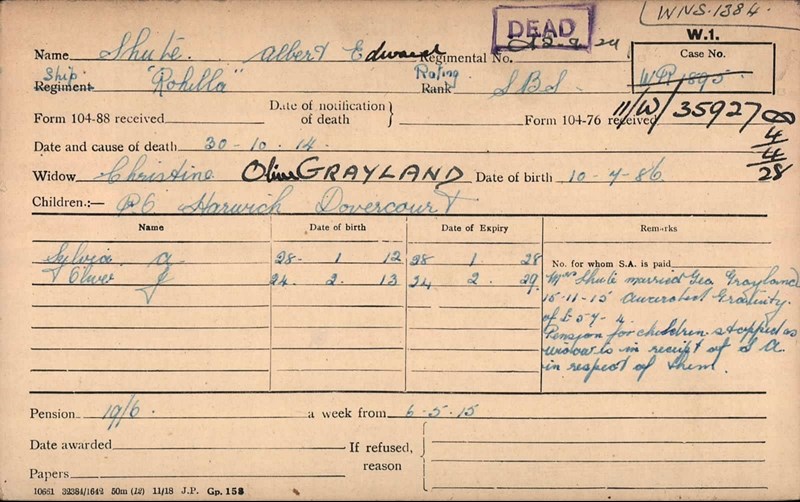 WNS.1384.
DEAD
W.1.
Name Shute. Albert Edward Regimental No. Case No.
Ship Regiment "Rohilla" Rating Rank SBS. WP 1895
11/W/35927
Form 104-88 received Date of notification of death } Form 104-76 received
8/4/28
Date and cause of death 30-10.14.
Widow Christina Olive GRAYLAND Date of birth 10-7-86
Children:— P.O Harwich Dovercourt
Name Date of birth Date of Expiry Remarks
Sylvia G 28- 1 12 28 1 28 No. for whom S.A. is paid
28 Oliver J 24. 2. 13 24 2. 29.
Mrs Shute married Geo Grayland
15-11-15 awarded Gratuity.
of £ 57- 4.
Pension for children stopped as
widow is in receipt of S A
in respect of them.
Pension 19/6. a week from 6-5.15
Date awarded If refused, reason
Papers
10661 32384/1642 50m (12) 11/18 J.P. Gp. 153